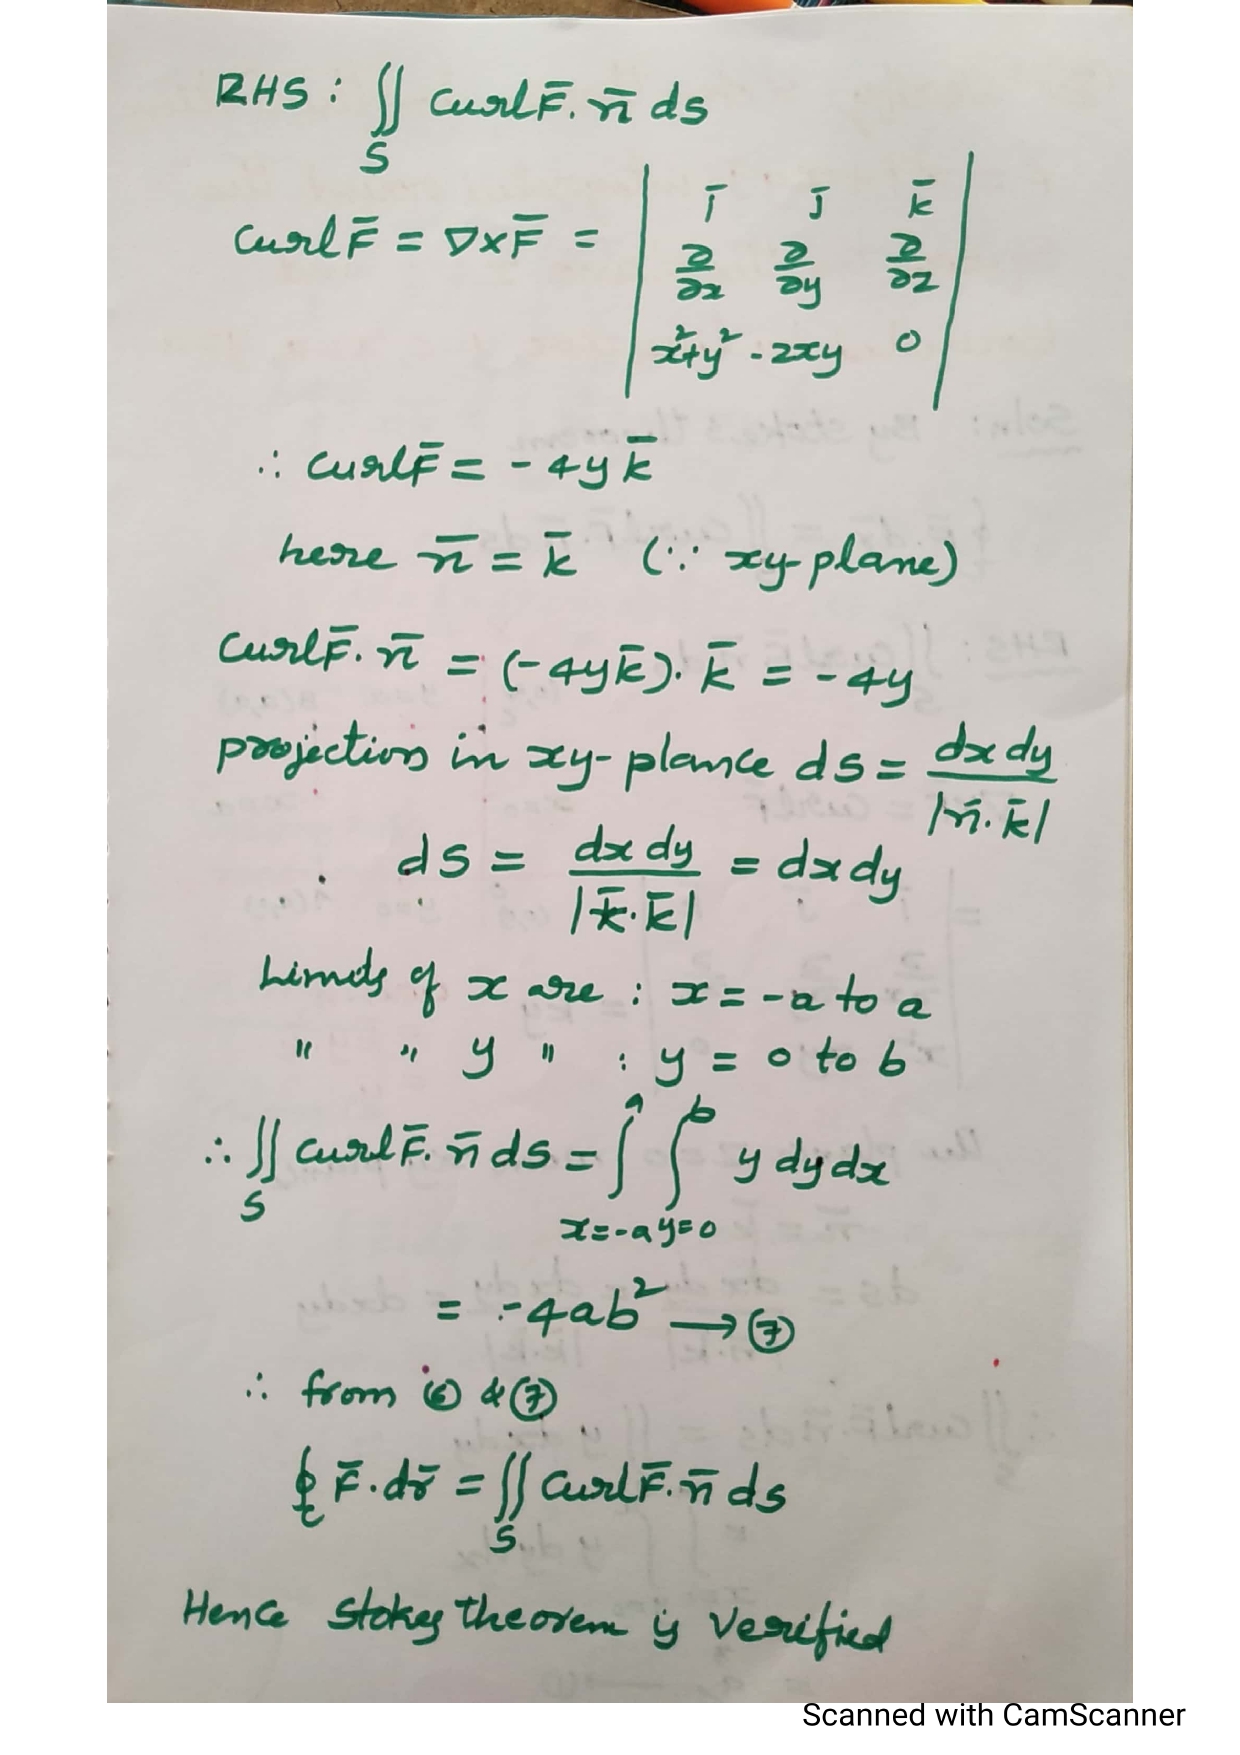 RHS : ∬_S curl F̄. n̄ ds
curl F̄ = ∇×F̄ = | ī j̄ k̄ |
| ∂/∂x ∂/∂y ∂/∂z |
| x²+y² -2xy 0 |
∴ curl F̄ = - 4y k̄
here n̄ = k̄ (∵ xy-plane)
curl F̄. n̄ = (-4y k̄). k̄ = - 4y
projection in xy-plance ds = dx dy / |n̄. k̄|
ds = dx dy / |k̄. k̄| = dx dy
Limits of x are : x = -a to a
" " y " : y = 0 to b
∴ ∬_S curl F̄. n̄ ds = ∫_{x=-a}^{a} ∫_{y=0}^{b} y dy dx
= -4ab² → ⑦
∴ from ⑥ & ⑦
∮_C F̄. dr̄ = ∬_S curl F̄. n̄ ds
Hence Stokes theorem is verified
Scanned with CamScanner